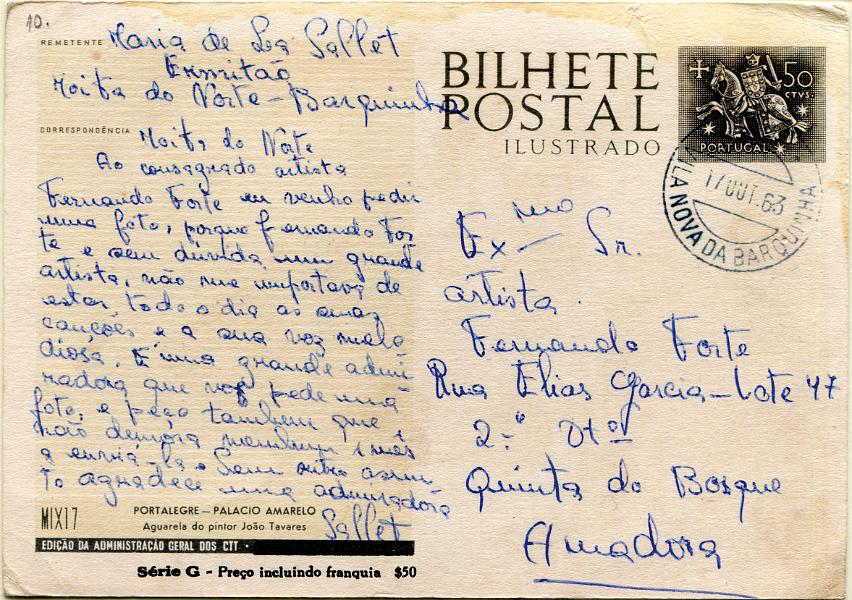 10.
REMETENTE Maria de Sallet
Ermitão
Moita do Norte - Barquinha
CORRESPONDÊNCIA Moita do Norte
Ao consagrado artista
Fernando Forte eu venho pedir
uma foto, porque Fernando For
te e sem dúvida um grande
artista, não me importava de
estar todo o dia as suas
canções e a sua voz melo
diosa. É uma grande admi-
radora que vos pede uma
foto, e peço tambem que
não demora nenhum mês
a enviá-la. Sem outro assun
to agradece uma admiradora
Sallet
MIX17
PORTALEGRE — PALACIO AMARELO
Aguarela do pintor João Tavares
EDIÇÃO DA ADMINISTRAÇÃO GERAL DOS CTT
Série G - Preço incluindo franquia $50
BILHETE
POSTAL
ILUSTRADO
50
CTVS.
PORTUGAL
17 OUT. 63
VILA NOVA DA BARQUINHA
Exmo Sr.
artista.
Fernando Forte
Rua Elias Garcia - Lote 47
2.º Dto
Quinta do Bosque
Amadora